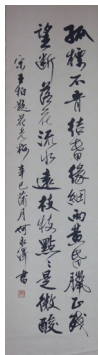 孤標不肯結春緣細雨黃昏臘正殘
望斷落花流水遠枝枝點點是微酸
宋王柏題花光梅 辛巳蒲月何書